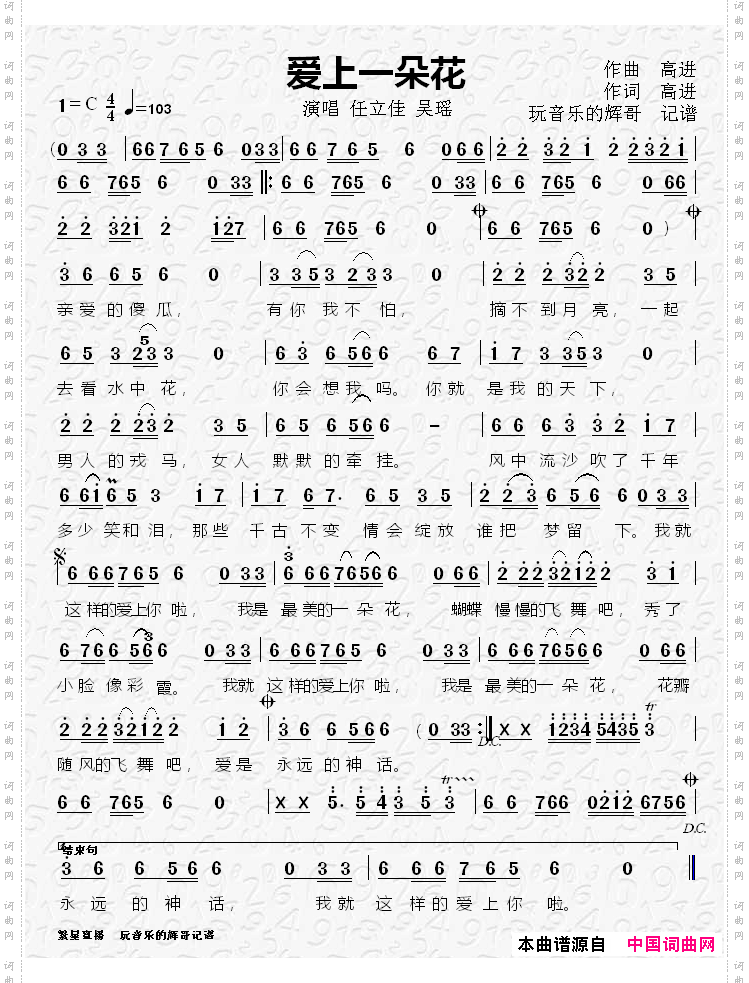 爱上一朵花
1=C 4/4 ♩=103
演唱 任立佳 吴瑶
作曲 高进
作词 高进
玩音乐的辉哥 记谱
(0 3 3 | 6 6 7 6 5 6 0 3 3 | 6 6 7 6 5 6 0 6 6 | 2 2 3 2 1 2 2 3 2 1 |
6 6 7 6 5 6 0 3 3 ‖: 6 6 7 6 5 6 0 3 3 | 6 6 7 6 5 6 0 6 6 |
2 2 3 2 1 2 1 2 7 | 6 6 7 6 5 6 0 | 6 6 7 6 5 6 0 ) |
3 6 6 5 6 0 | 3 3 5 3 2 3 3 0 | 2 2 2 3 2 2 3 5 |
亲爱的傻瓜， 有你我不怕， 摘不到月亮，一起
6 5 3 2 3 3 0 | 6 3 6 5 6 6 6 7 | 1 7 3 3 5 3 0 |
去看水中花， 你会想我吗。你就是我的天下，
2 2 2 2 3 2 3 5 | 6 5 6 5 6 6 - | 6 6 6 3 3 2 1 7 |
男人的戎马，女人默默的牵挂。 风中流沙吹了千年
6 6 1 6 5 3 1 7 | 1 7 1 7 6 7· 6 5 3 5 | 2 2 3 6 5 6 6 0 3 3 |
多少笑和泪，那些千古不变 情会绽放谁把梦留下。我就
6 6 6 7 6 5 6 0 3 3 | 6 6 6 7 6 5 6 6 0 6 6 | 2 2 2 3 2 1 2 2 3 1 |
这样的爱上你啦， 我是最美的一朵花， 蝴蝶慢慢的飞舞吧，秀了
6 7 6 6 5 6 6 0 3 3 | 6 6 6 7 6 5 6 0 3 3 | 6 6 6 7 6 5 6 6 0 6 6 |
小脸像彩霞。 我就这样的爱上你啦， 我是最美的一朵花， 花瓣
2 2 2 2 3 2 1 2 2 1 2 | 3 6 6 5 6 6 (0 3 3 :‖ X X 1 2 3 4 5 4 3 5 3 tr
D.C.
随风的飞舞吧，爱是永远的神话。
6 6 7 6 5 6 0 | X X 5· 5 4 3 5 3 tr | 6 6 7 6 6 0 2 1 2 6 7 5 6 |
D.C.
结束句
3 6 6 5 6 6 0 3 3 | 6 6 6 7 6 5 6 0 ‖
永远的神话， 我就这样的爱上你啦。
繁星直播 玩音乐的辉哥记谱
本曲谱源自 中国词曲网